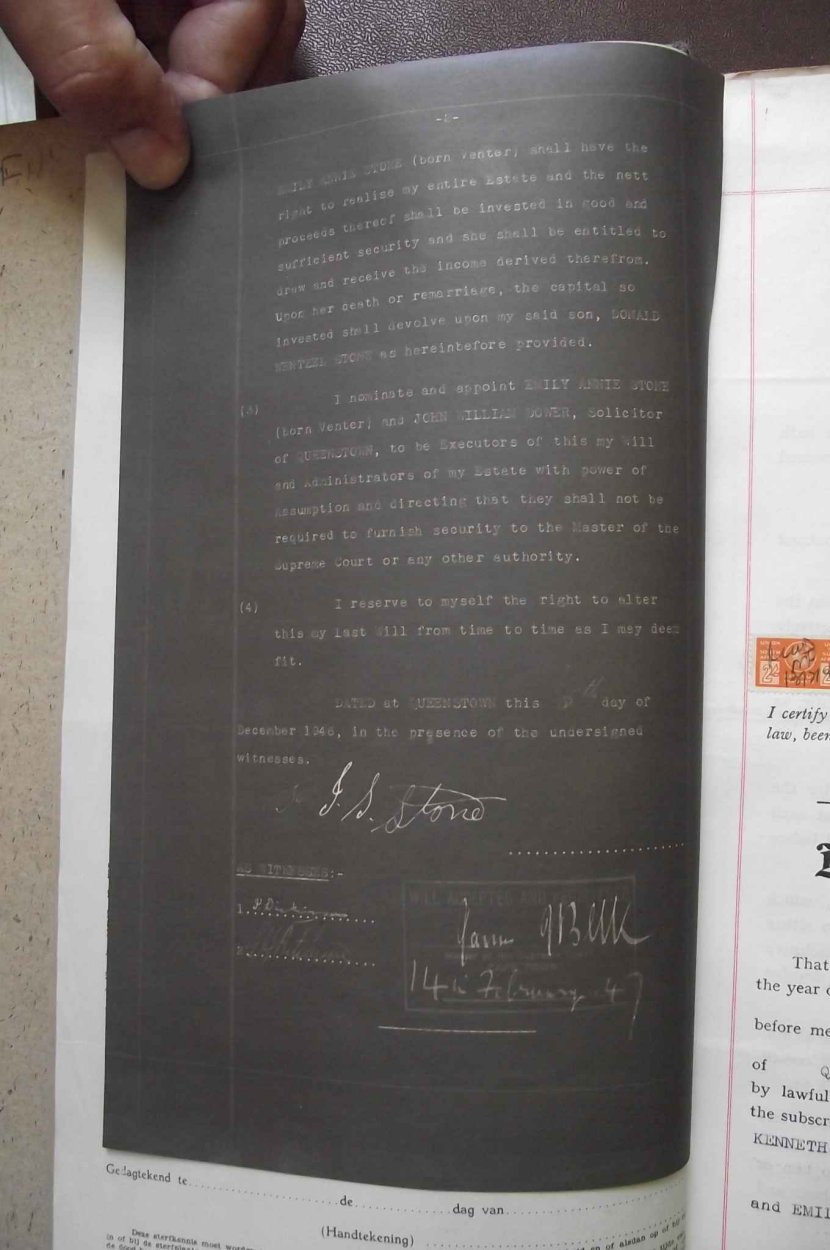 -2-
EMILY ANNIE STONE (born Venter) shall have the
right to realise my entire Estate and the nett
proceeds thereof shall be invested in good and
sufficient security and she shall be entitled to
draw and receive the income derived therefrom.
Upon her death or remarriage, the capital so
invested shall devolve upon my said son, DONALD
WENTZEL STONE as hereinbefore provided.
(3) I nominate and appoint EMILY ANNIE STONE
(born Venter) and JOHN WILLIAM BOWER, Solicitor
of QUEENSTOWN, to be Executors of this my Will
and Administrators of my Estate with power of
Assumption and directing that they shall not be
required to furnish security to the Master of the
Supreme Court or any other authority.
(4) I reserve to myself the right to alter
this my last Will from time to time as I may deem
fit.
DATED at QUEENSTOWN this th day of
December 1946, in the presence of the undersigned
witnesses.
J. S. Stone
AS WITNESSES:-
1.
2.
WILL ACCEPTED AND
14th February 47
Gedagtekend te
de dag van
(Handtekening)
Deze sterfkennis moet
I certify
law, been
That
the year
before me
of
by lawful
the subscr
KENNETH
and EMIL